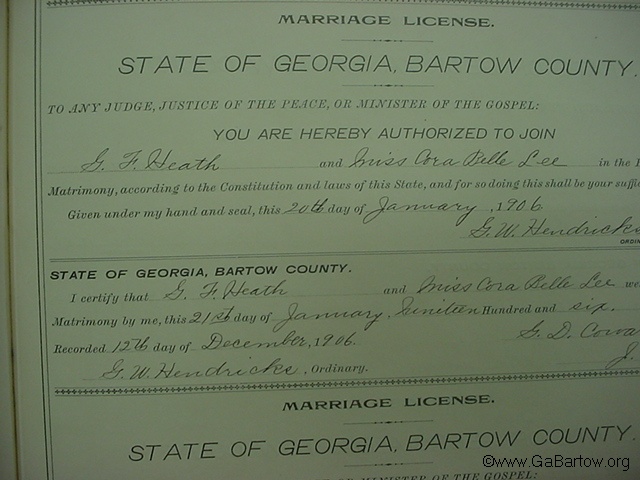 MARRIAGE LICENSE.
STATE OF GEORGIA, BARTOW COUNTY.
TO ANY JUDGE, JUSTICE OF THE PEACE, OR MINISTER OF THE GOSPEL:
YOU ARE HEREBY AUTHORIZED TO JOIN
G. F. Heath and Miss Cora Belle Lee in the
Matrimony, according to the Constitution and laws of this State, and for so doing this shall be your suffic
Given under my hand and seal, this 20th day of January, 1906
G. W. Hendricks
ORDIN
STATE OF GEORGIA, BARTOW COUNTY.
I certify that G. F. Heath and Miss Cora Belle Lee we
Matrimony by me, this 21st day of January, Hundred and six.
Recorded 12th day of December, 1906. G. D. Cowa
G. W. Hendricks, Ordinary. J.
MARRIAGE LICENSE.
STATE OF GEORGIA, BARTOW COUNTY.
TO ANY JUDGE, JUSTICE OF THE PEACE, OR MINISTER OF THE GOSPEL:
©www.GaBartow.org